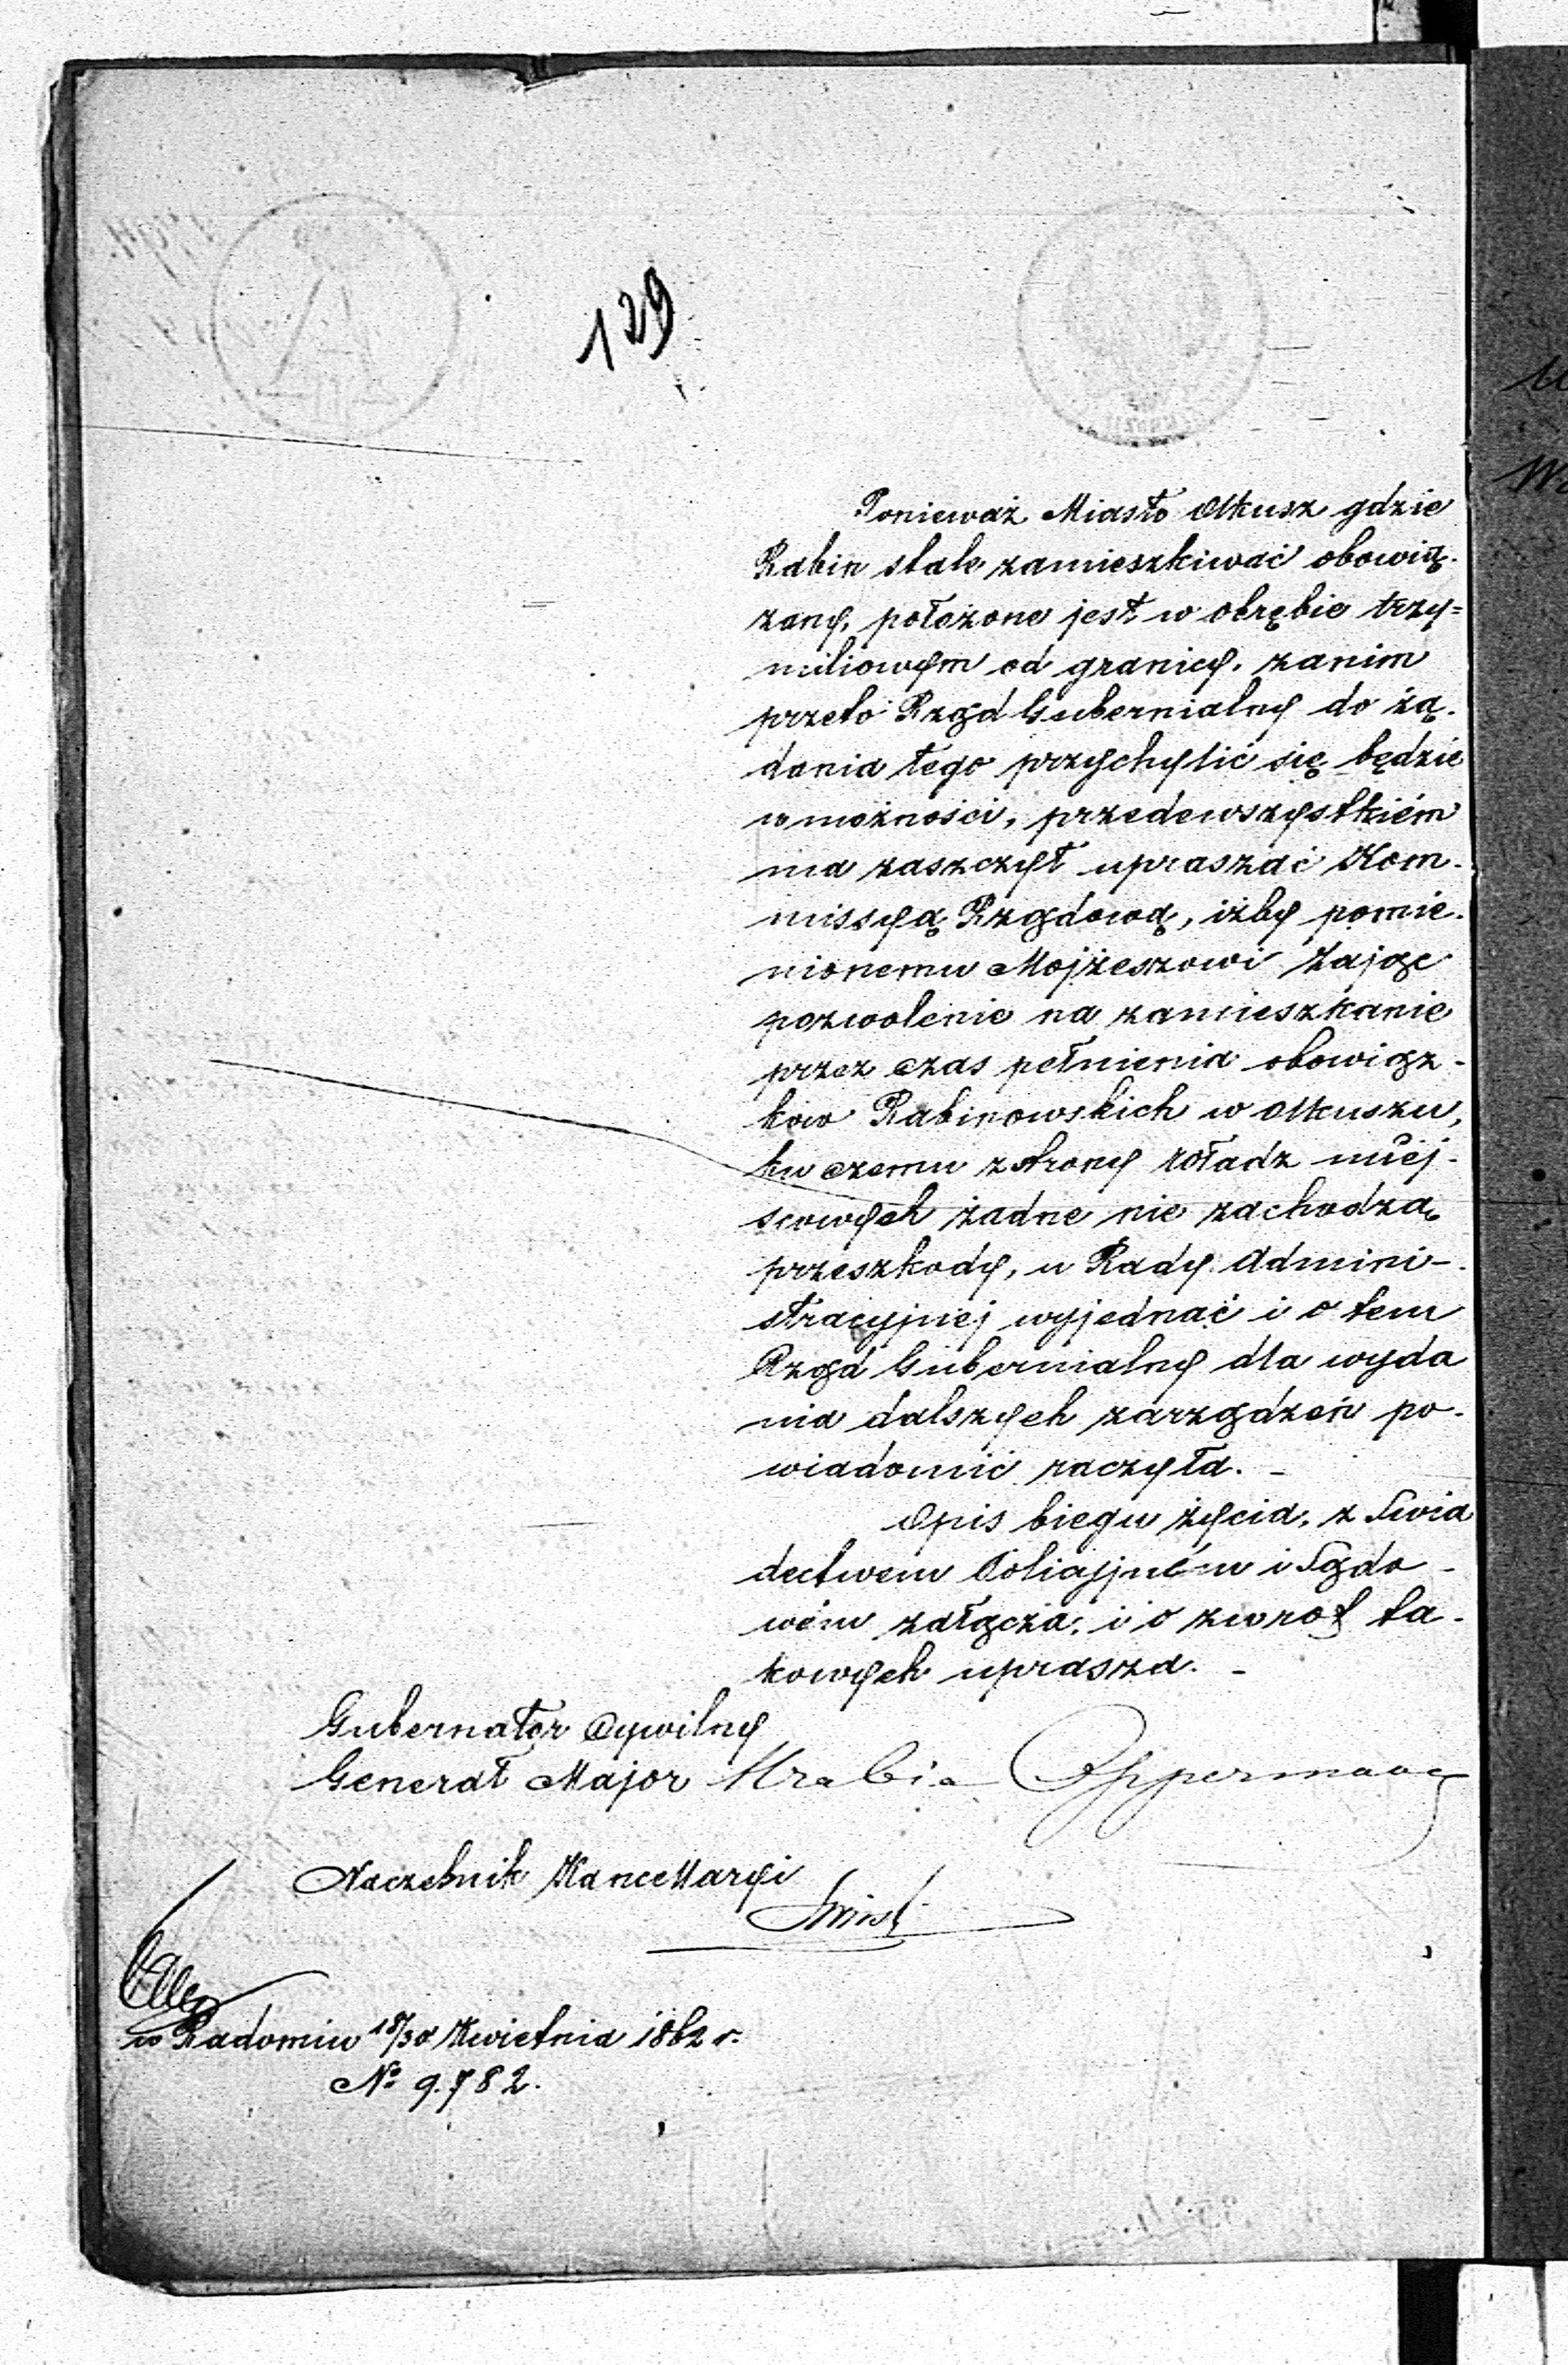 129
Ponieważ Miasto Olkusz gdzie
Rabin stale zamieszkiwać obowią-
zany, położone jest w obrębie trzy=
miliowym od granicy, zanim
przeto Rząd Gubernialny do żą-
dania tego przychylić się będzie
w możności, przedewszystkiém
ma zaszczyt upraszać Kom-
missyą Rządową, iżby pomie-
nionemu Mojżeszowi Zając
pozwolenie na zamieszkanie
przez czas pełnienia obowiąz-
ków Rabinowskich w Olkuszu,
ku czemu z strony władz miej-
scowych żadne nie zachodzą
przeszkody, u Rady Admini-
stracyjnej wyjednać i o tem
Rząd Gubernialny dla wyda
nia dalszych zarządzeń po-
wiadomić raczyła. -
Opis biegu życia, z Swia
dectwem Policyjném i Sądo-
wém załącza, i o zwrot ta-
kowych uprasza. -
Gubernator Cywilny
Generał Major Hrabia Oppermann
Naczelnik Kancellaryi
w Radomiu 18/30 Kwietnia 1862 r.
№ 9.782.